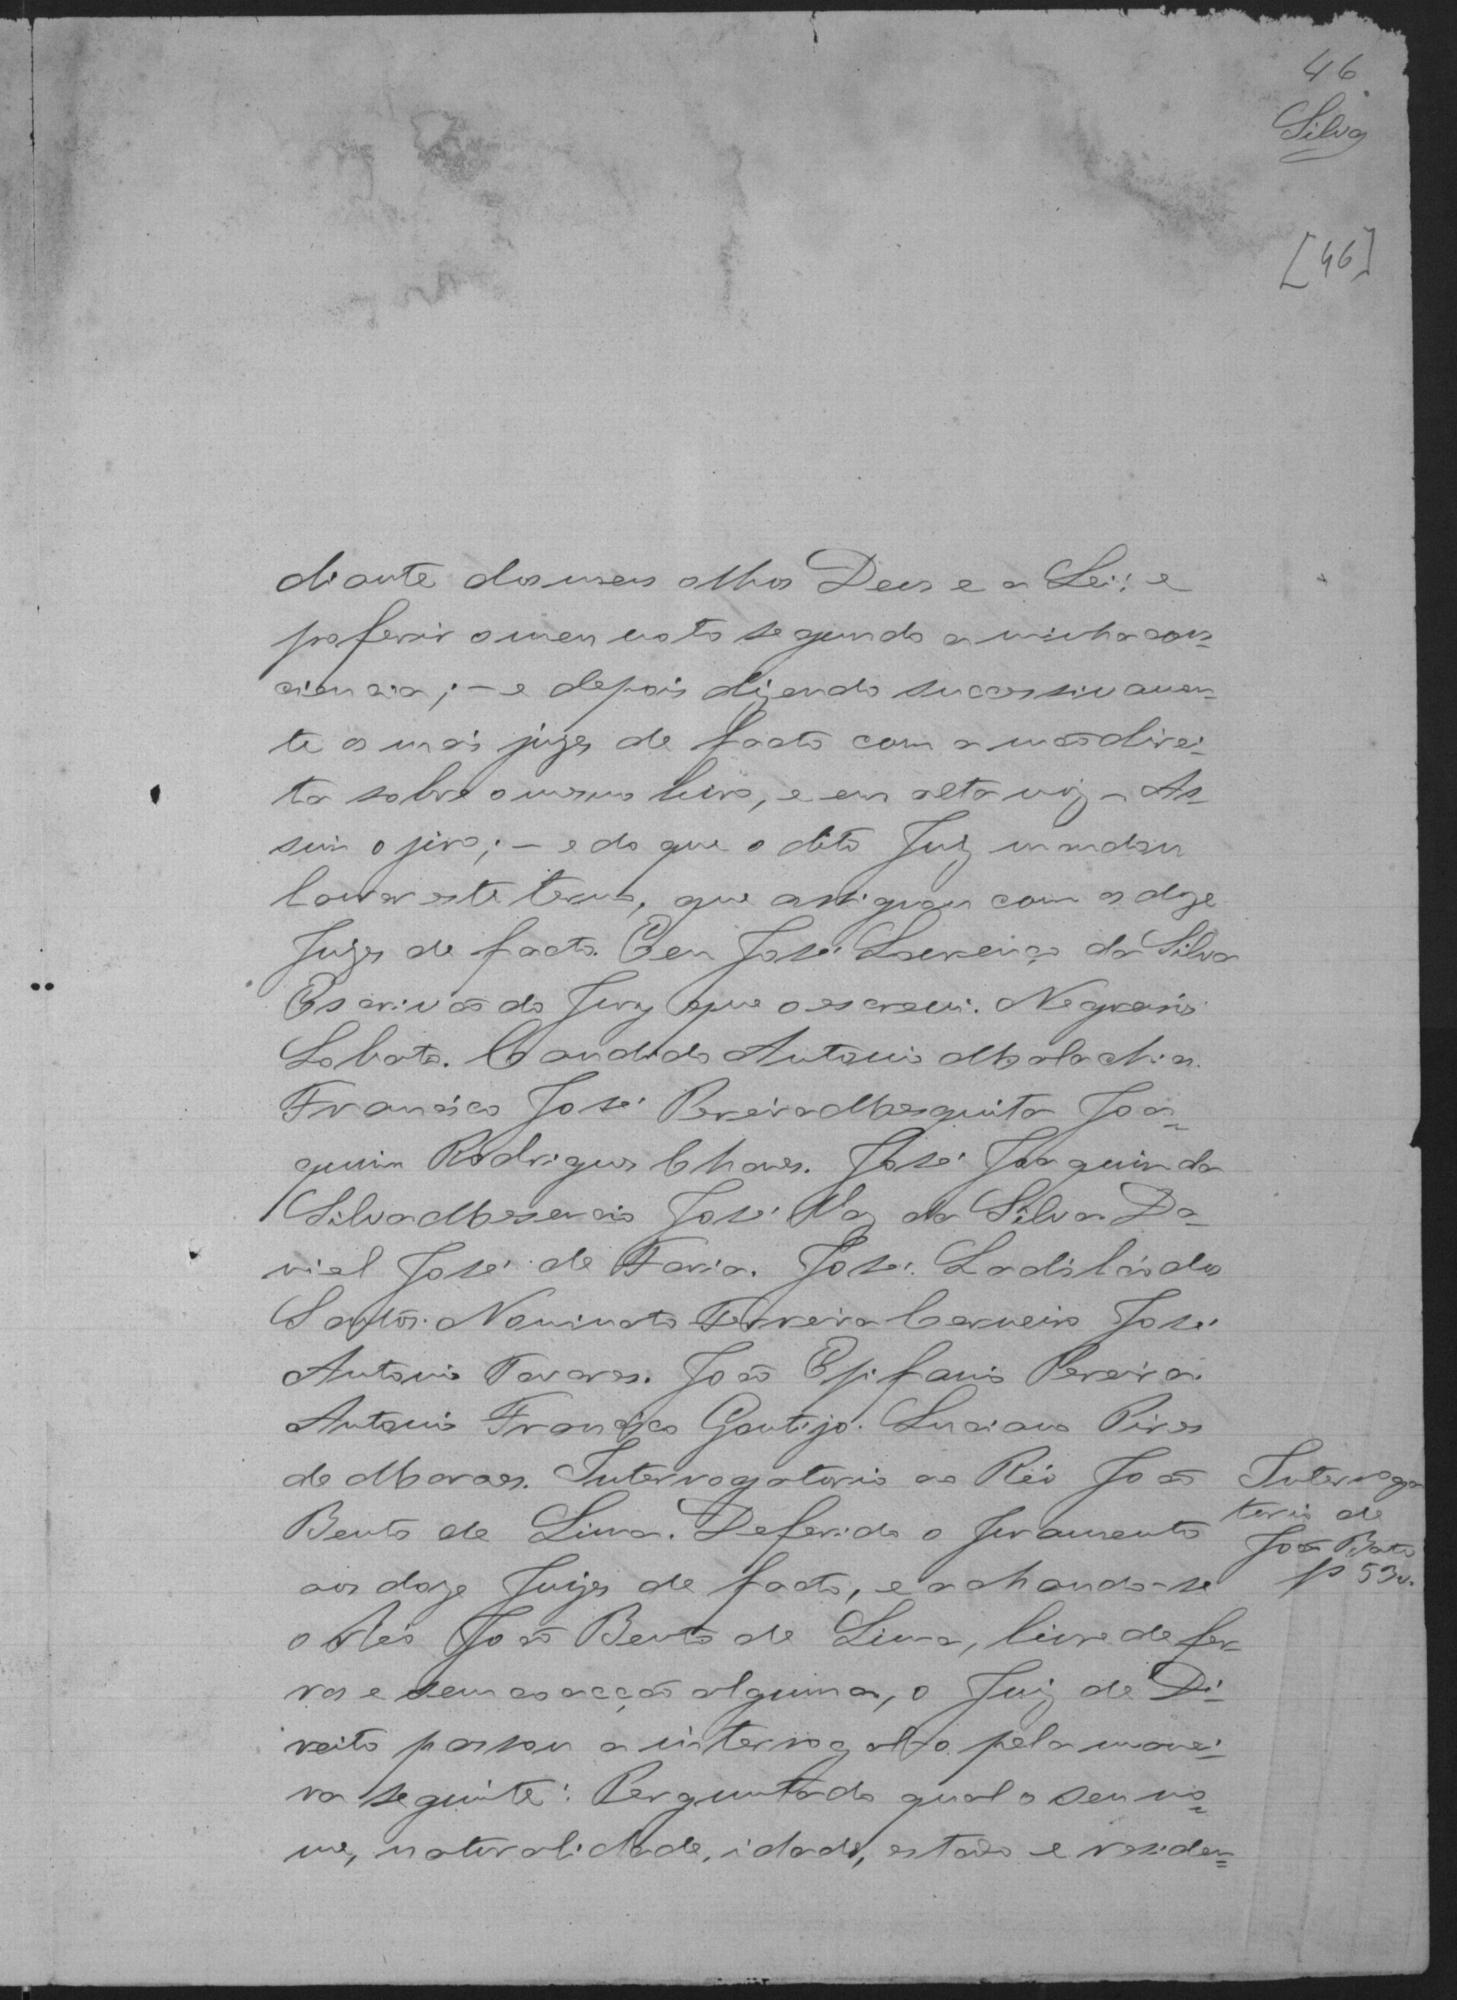 46
Silva
[46]
diante dos meus olhos Deus e a Lei; e
proferir o meu voto segundo a minha cons=
ciencia; – e depois dizendo successivamen-
te os mais juizes de facto com a mão direi-
ta sobre o mesmo livro, e em alta voz – As-
sim o juro; – e do que o dito Juiz mandou
lavrar este termo, que assignou com os doze
Juizes de facto. Eu José Lourenço da Silva
Escrivão do Jury que o escrevi. Negreiros
Lobato. Candido Antonio Malachias.
Francisco José Pereira Mesquita Joa=
quim Rodrigues Chaves. José Joaquim da
Silva Mesencio José Vaz da Silva. Da-
niel José de Faria. José Ladislão dos
Santos. Nominato Ferreira Carneiro José
Antonio Tavares. João Epifanio Pereira.
Antonio Francisco Gontijo. Luciano Pires
de Moraes. Interrogatorio ao Réo João
Bento de Lima. Deferido o juramento
aos doze Juizes de facto, e achando-se
o Réo João Bento de Lima, livre de fer-
ros e sem coacção alguma, o Juiz de Di-
reito passou a interrogal-o pela manei-
ra seguinte: Perguntado qual o seu no=
me, naturalidade, idade, estado e residen=
Interroga
torio de
João Bento
p 53v.